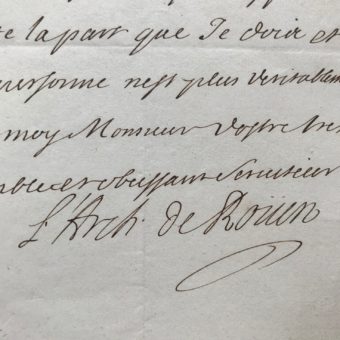 la part que Je dois et
personne nest plus veritablem
moy Monsieur vostre tres
obeissant Serviteur
L'Arch. de Roüen